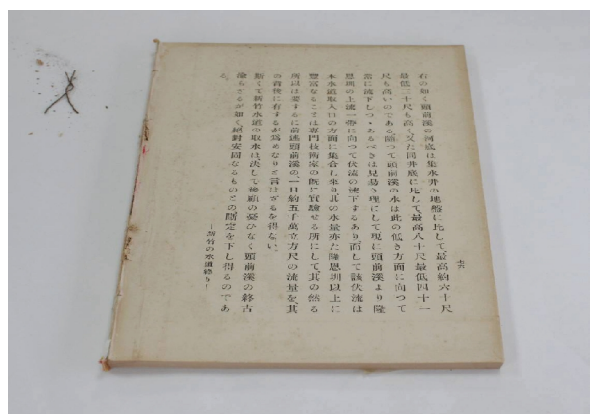 七六
右の如く頭前溪の河底は集水井の地盤に比して最高約六十尺
最低二十尺も高く又た同井底に比して最高八十尺最低四十一
尺も高いのである。隨つて頭前溪の水は此の低き方面に向つて
常に流下しつゝあるべきは見易き理にして現に頭前溪より隆
恩圳の上流一帶に向つて伏流の流下するあり、而して該伏流は
本水道取入口の方面に集合し來り其の水量亦た隆恩圳以上に
豐富なることは專門技術家の既に實驗せる所にして、其の然る
所以は要するに前述頭前溪の一日約五千萬立方尺の流量を、其
の背後に有するが爲めなりと言はざるを得ない。
斯くて新竹水道の取水は、決して涸渴の憂ひなく頭前溪の終古
渝らざるが如く、絕對安固なるものとの斷定を下し得るのであ
る。
―新竹の水道終り―